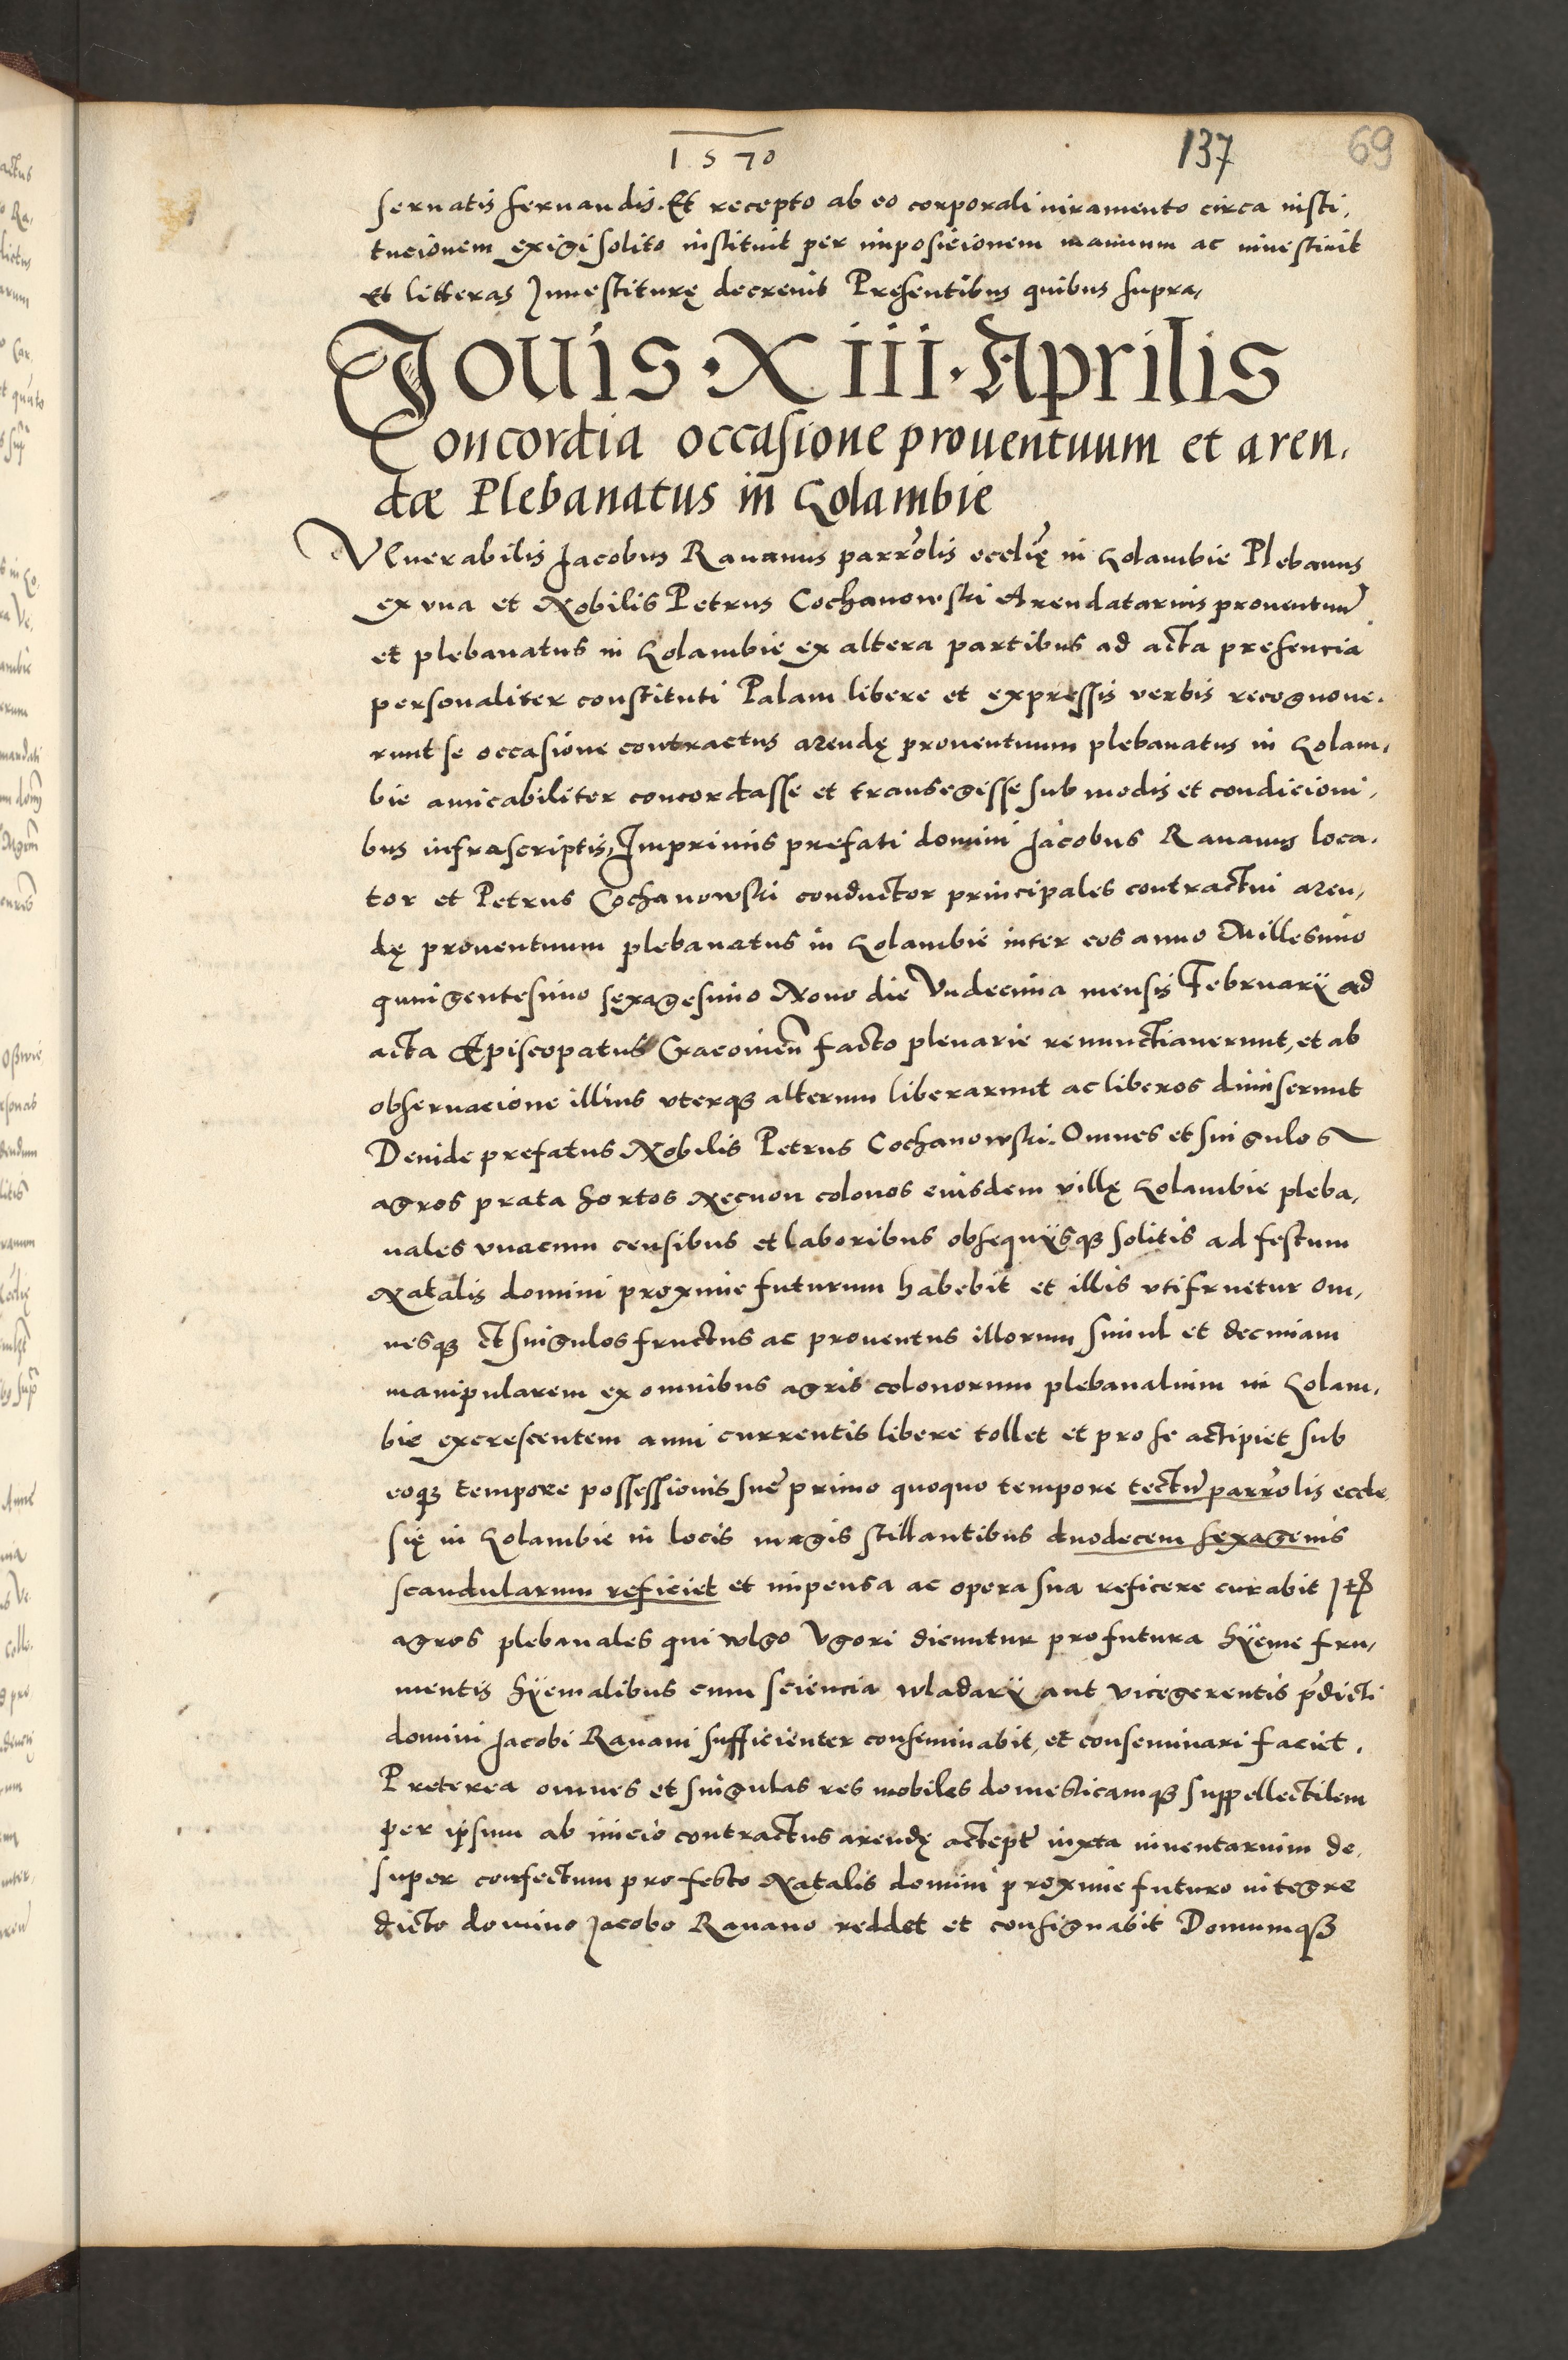 1570
137
69
seruatis seruandis. Et recepto ab eo corporali iuramento circa insti,
tucionem exigi solito instituit per imposicionem manuum ac inuestiuit
Et litteras Inuestiturę decreuit Presentibus quibus supra,
Jouis · XIII · Aprilis
Concordia occasione prouentuum et aren,
dæ Plebanatus in Golambie
VEnerabilis Jacobus Rauanus parrolis ecclię in Golambie Plebanus
ex vna et Nobilis Petrus Cochanowski Arendatarius prouentuu
et plebanatus in Golambie ex altera partibus ad acta presencia
personaliter constituti Palam libere et expressis verbis recognoue,
runt se occasione contractus arendę prouentuum plebanatus in Golam,
bie amicabiliter concordasse et transegisse sub modis et condicioni,
bus infrascriptis, Imprimis prefati domini Jacobus Rauanus loca,
tor et Petrus Cochanowski conductor principales contractui aren,
dę prouentuum plebanatus in Golambie inter eos anno Millesimo
quingentesimo sexagesimo Nono die Vndecima mensis Februarÿ ad
acta Episcopatus Cracouien facto plenarie renunctiauerunt, et ab
obseruacione illius vterqꝫ alterum liberarunt ac liberos dimiserunt
Deinde prefatus Nobilis Petrus Cochanowski. Omnes et singulos
agros prata hortos Necnon colonos eiusdem villę Golambie pleba,
nales vnacum censibus et laboribus obsequÿsqꝫ solitis ad festum
Natalis domini proxime futurum habebit et illis vtifruetur om,
nesqꝫ et singulos fructus ac prouentus illorum simul et decimam
manipularem ex omnibus agris colonorum plebanalium in Golam,
bie excrescentem anni currentis libere tollet et pro se actipiet sub
eoqꝫ tempore possessionis sue primo quoquo tempore tectu parrolis eccle,
się in Golambie in locis magis stillantibus duodecem sexagenis
scandularum reficiet et impensa ac opera sua reficere curabit Itē
agros plebanales qui wlgo Vgori dicuntur pro futura hÿeme fru,
mentis hÿemalibus cum sciencia wladarÿ aut vicegerentis pdicti
domini Jacobi Rauani sufficienter conseminabit, et conseminari faciet.
Preterea omnes et singulas res mobiles domesticamqꝫ suppellectilem
per ipsum ab inicio contractus arendę actept iuxta inuentarium de,
super confectum pro festo Natalis domini proxime futuro integre
dicto domino Jacobo Rauano reddet et consignabit Domumqꝫ